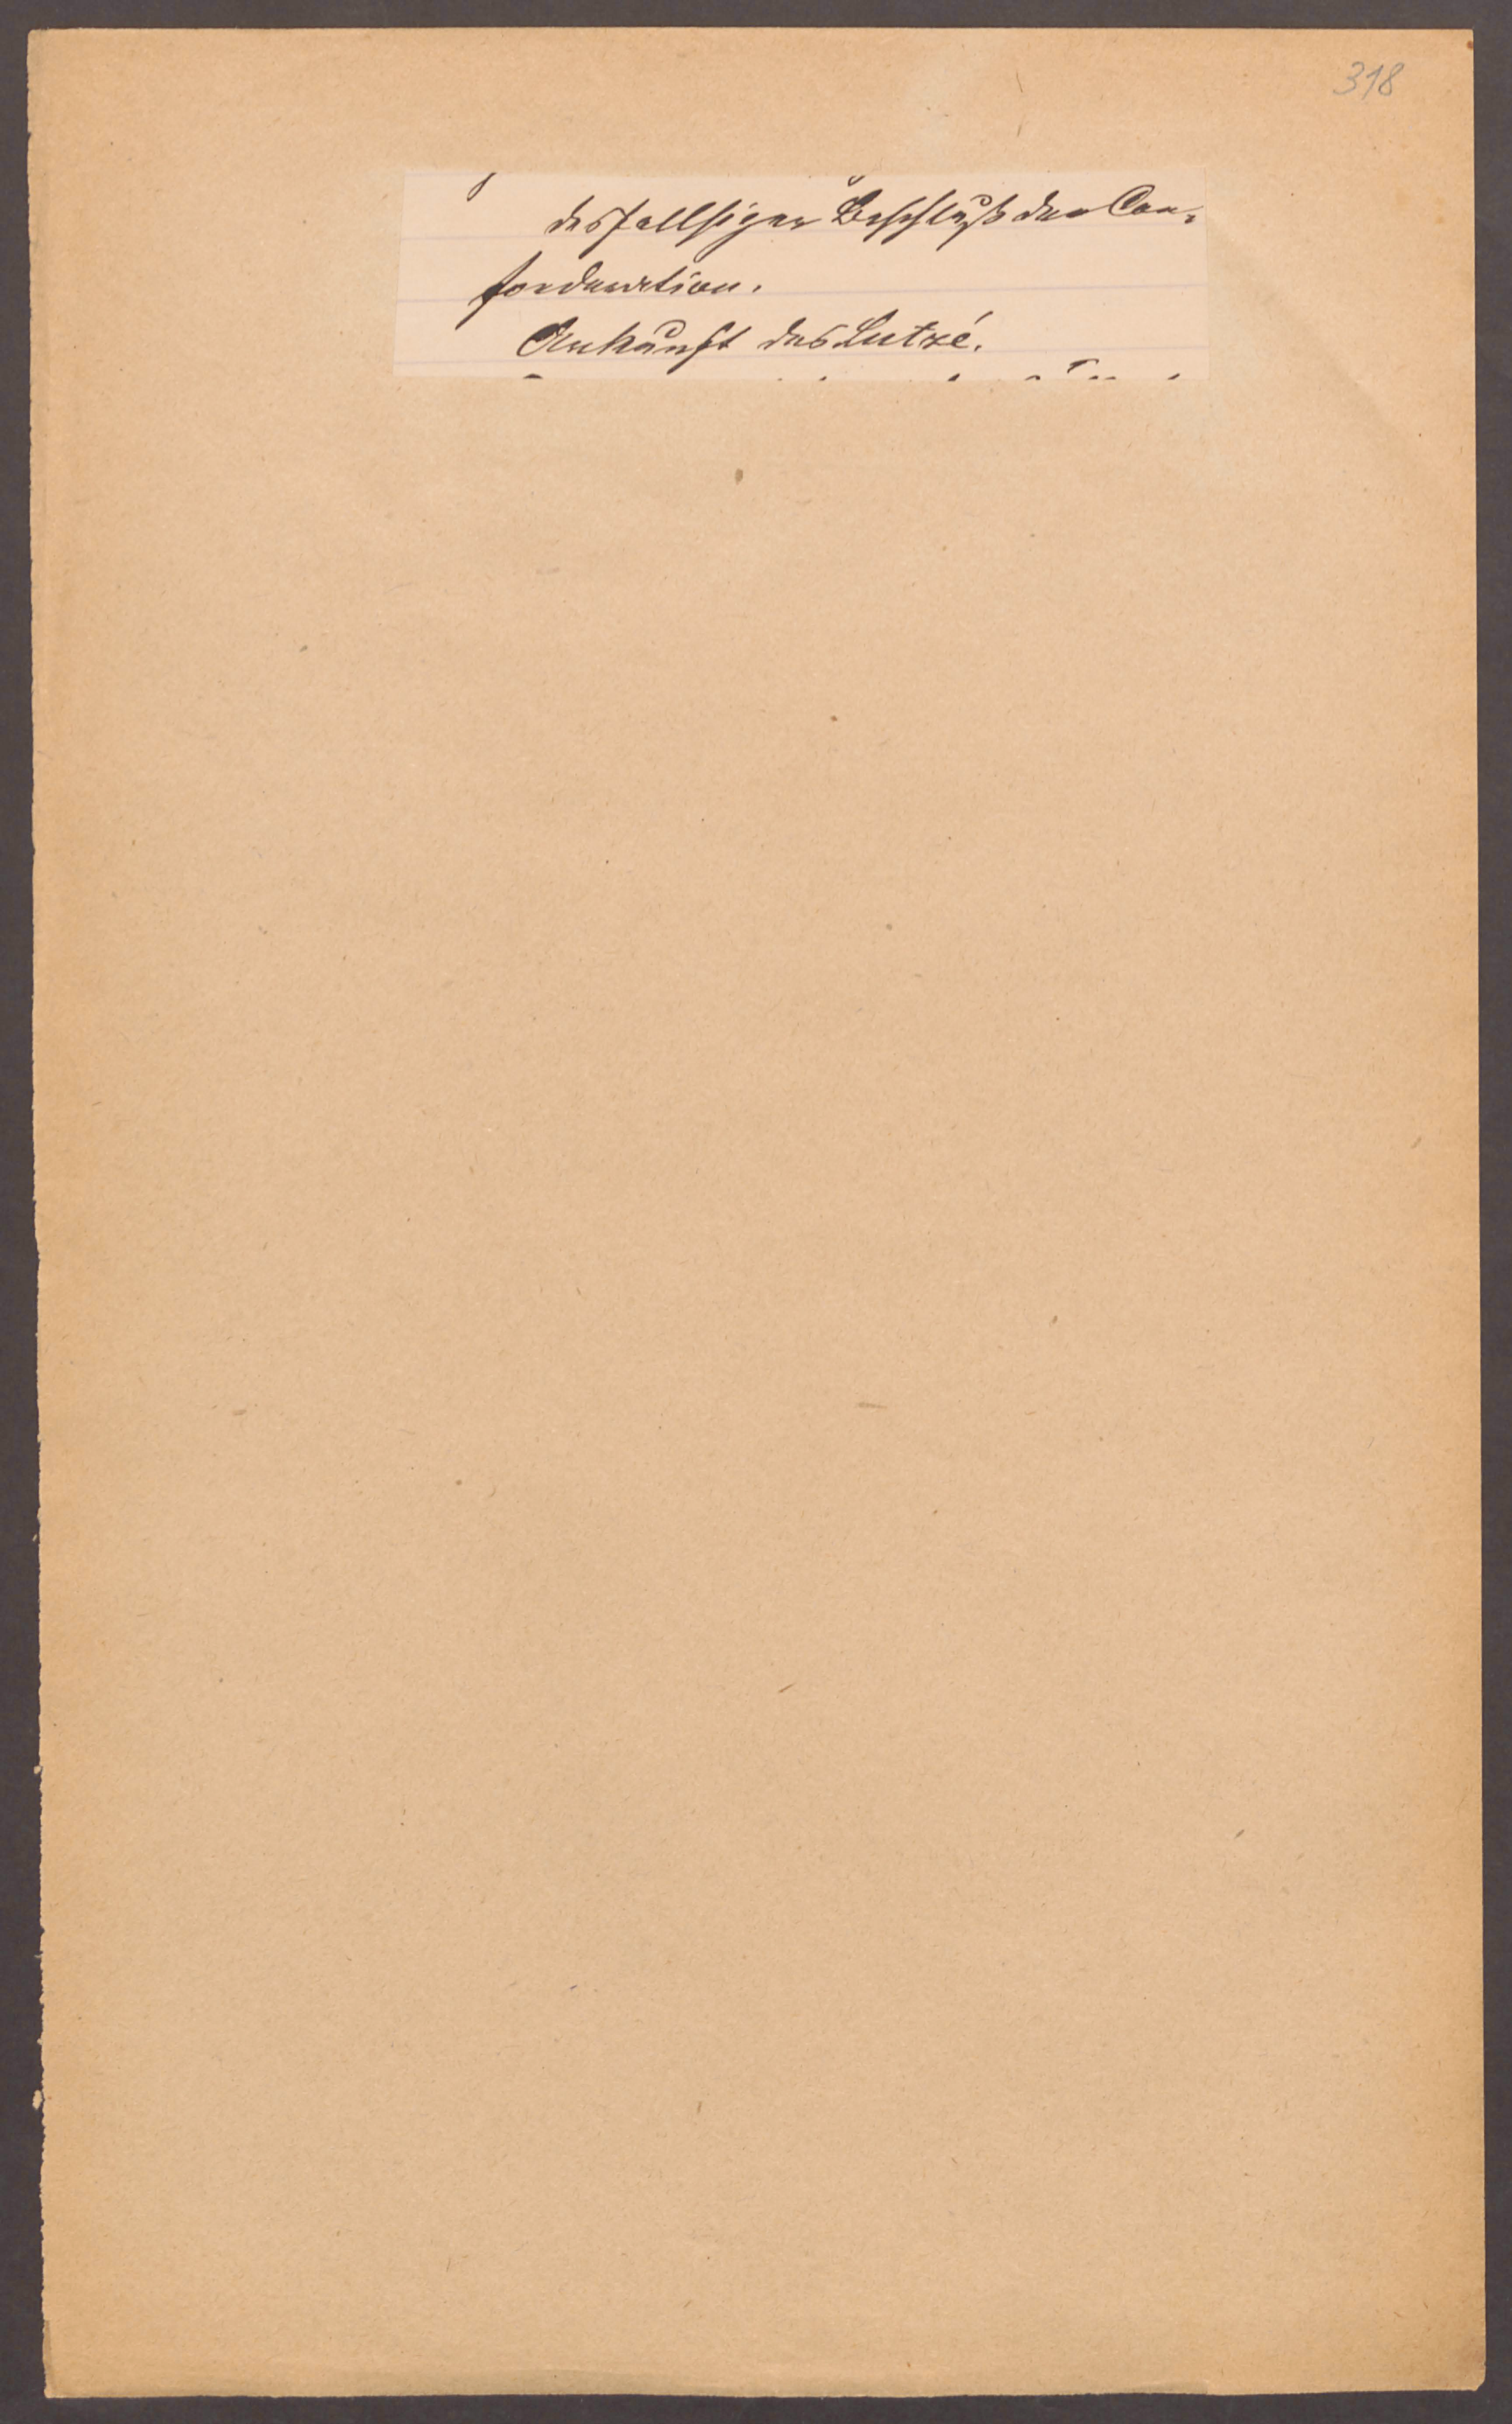 318
desfallsiger Beschluß der Con-
foederation.
Ankunft des Lutzé.